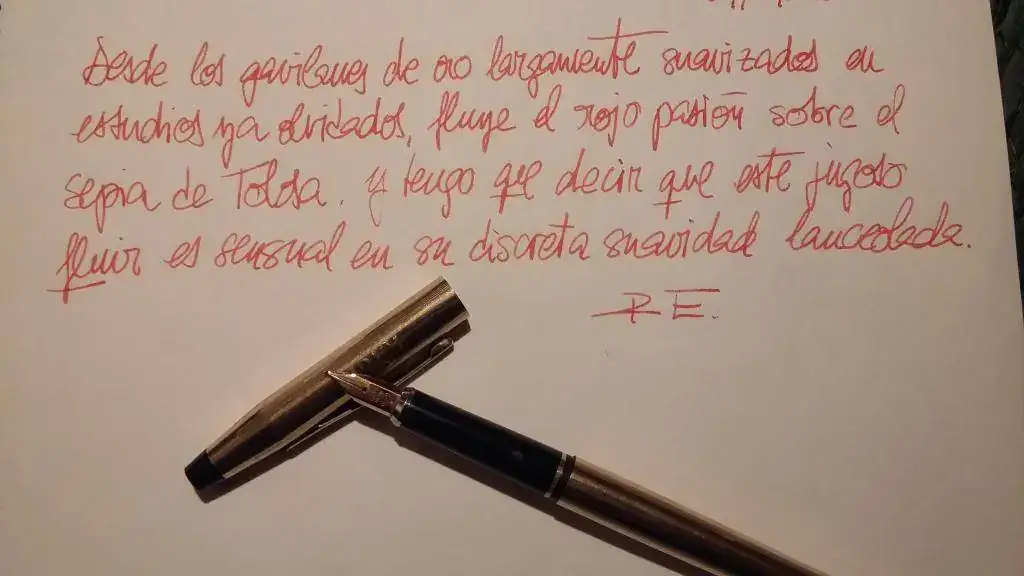 Desde los gavilanes de oro largamente suavizados en
estudios ya olvidados, fluye el rojo pasión sobre el
sepia de Tolosa. Y tengo que decir que este jugoso
fluir es sensual en su discreta suavidad lanceolada.
R E.